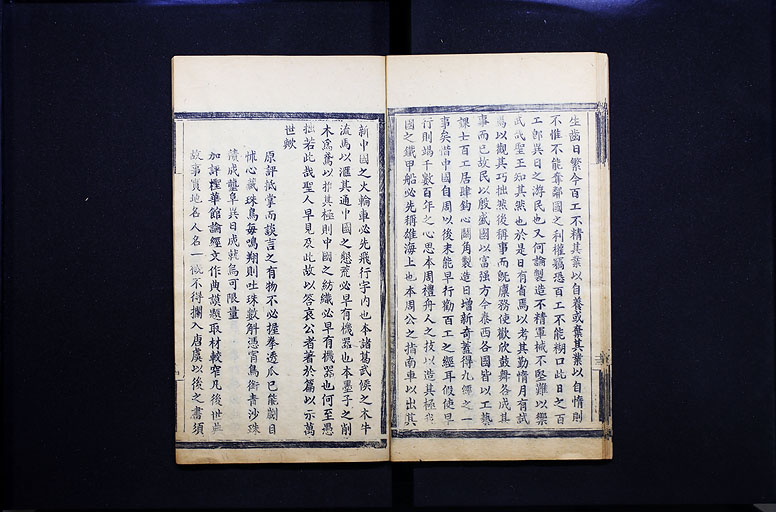 生齒日繁今百工不精其業以自養或棄其業以自惰則
不惟不能奪鄰國之利權竊恐百工不能糊口此日之百
工卽異日之游民也又何論製造不精軍械不堅難以禦
武哉聖王知其然也於是日有省焉以考其勤惰月有試
焉以觀其巧拙然後稱事而旣廩務使歡欣鼓舞各成其
事而已故民以殷盛國以富强方今泰西各國皆以工藝
課士百工居肆鈎心鬭角製造日增新奇蓋得九經之一
事矣惜中國自周以後未能早行勸百工之經耳假使早
行則竭千數百年之心思本周禮舟人之技以造其極
國之鐵甲船必先稱雄海上也本周公之指南車以出其
新中國之火輪車必先飛行宇內也本諸葛武侯之木牛
流馬以滙其通中國之懇荒必早有機器也本墨子之削
木爲鳶以推其極則中國之紡織必早有機器也何至愚
拙若此哉聖人早見及此故以答哀公者著於篇以示萬
世歟
原評抵掌而談言之有物不必握拳透瓜已能劌目
怵心藏珠鳥每鳴翔則吐珠數斛憑霄鳥銜青沙珠
積成壟阜異日成就烏可限量
加評樫華館論經文作典謨題取材較窄凡後世典
故事實地名人名一槪不得攔入唐虞以後之書須